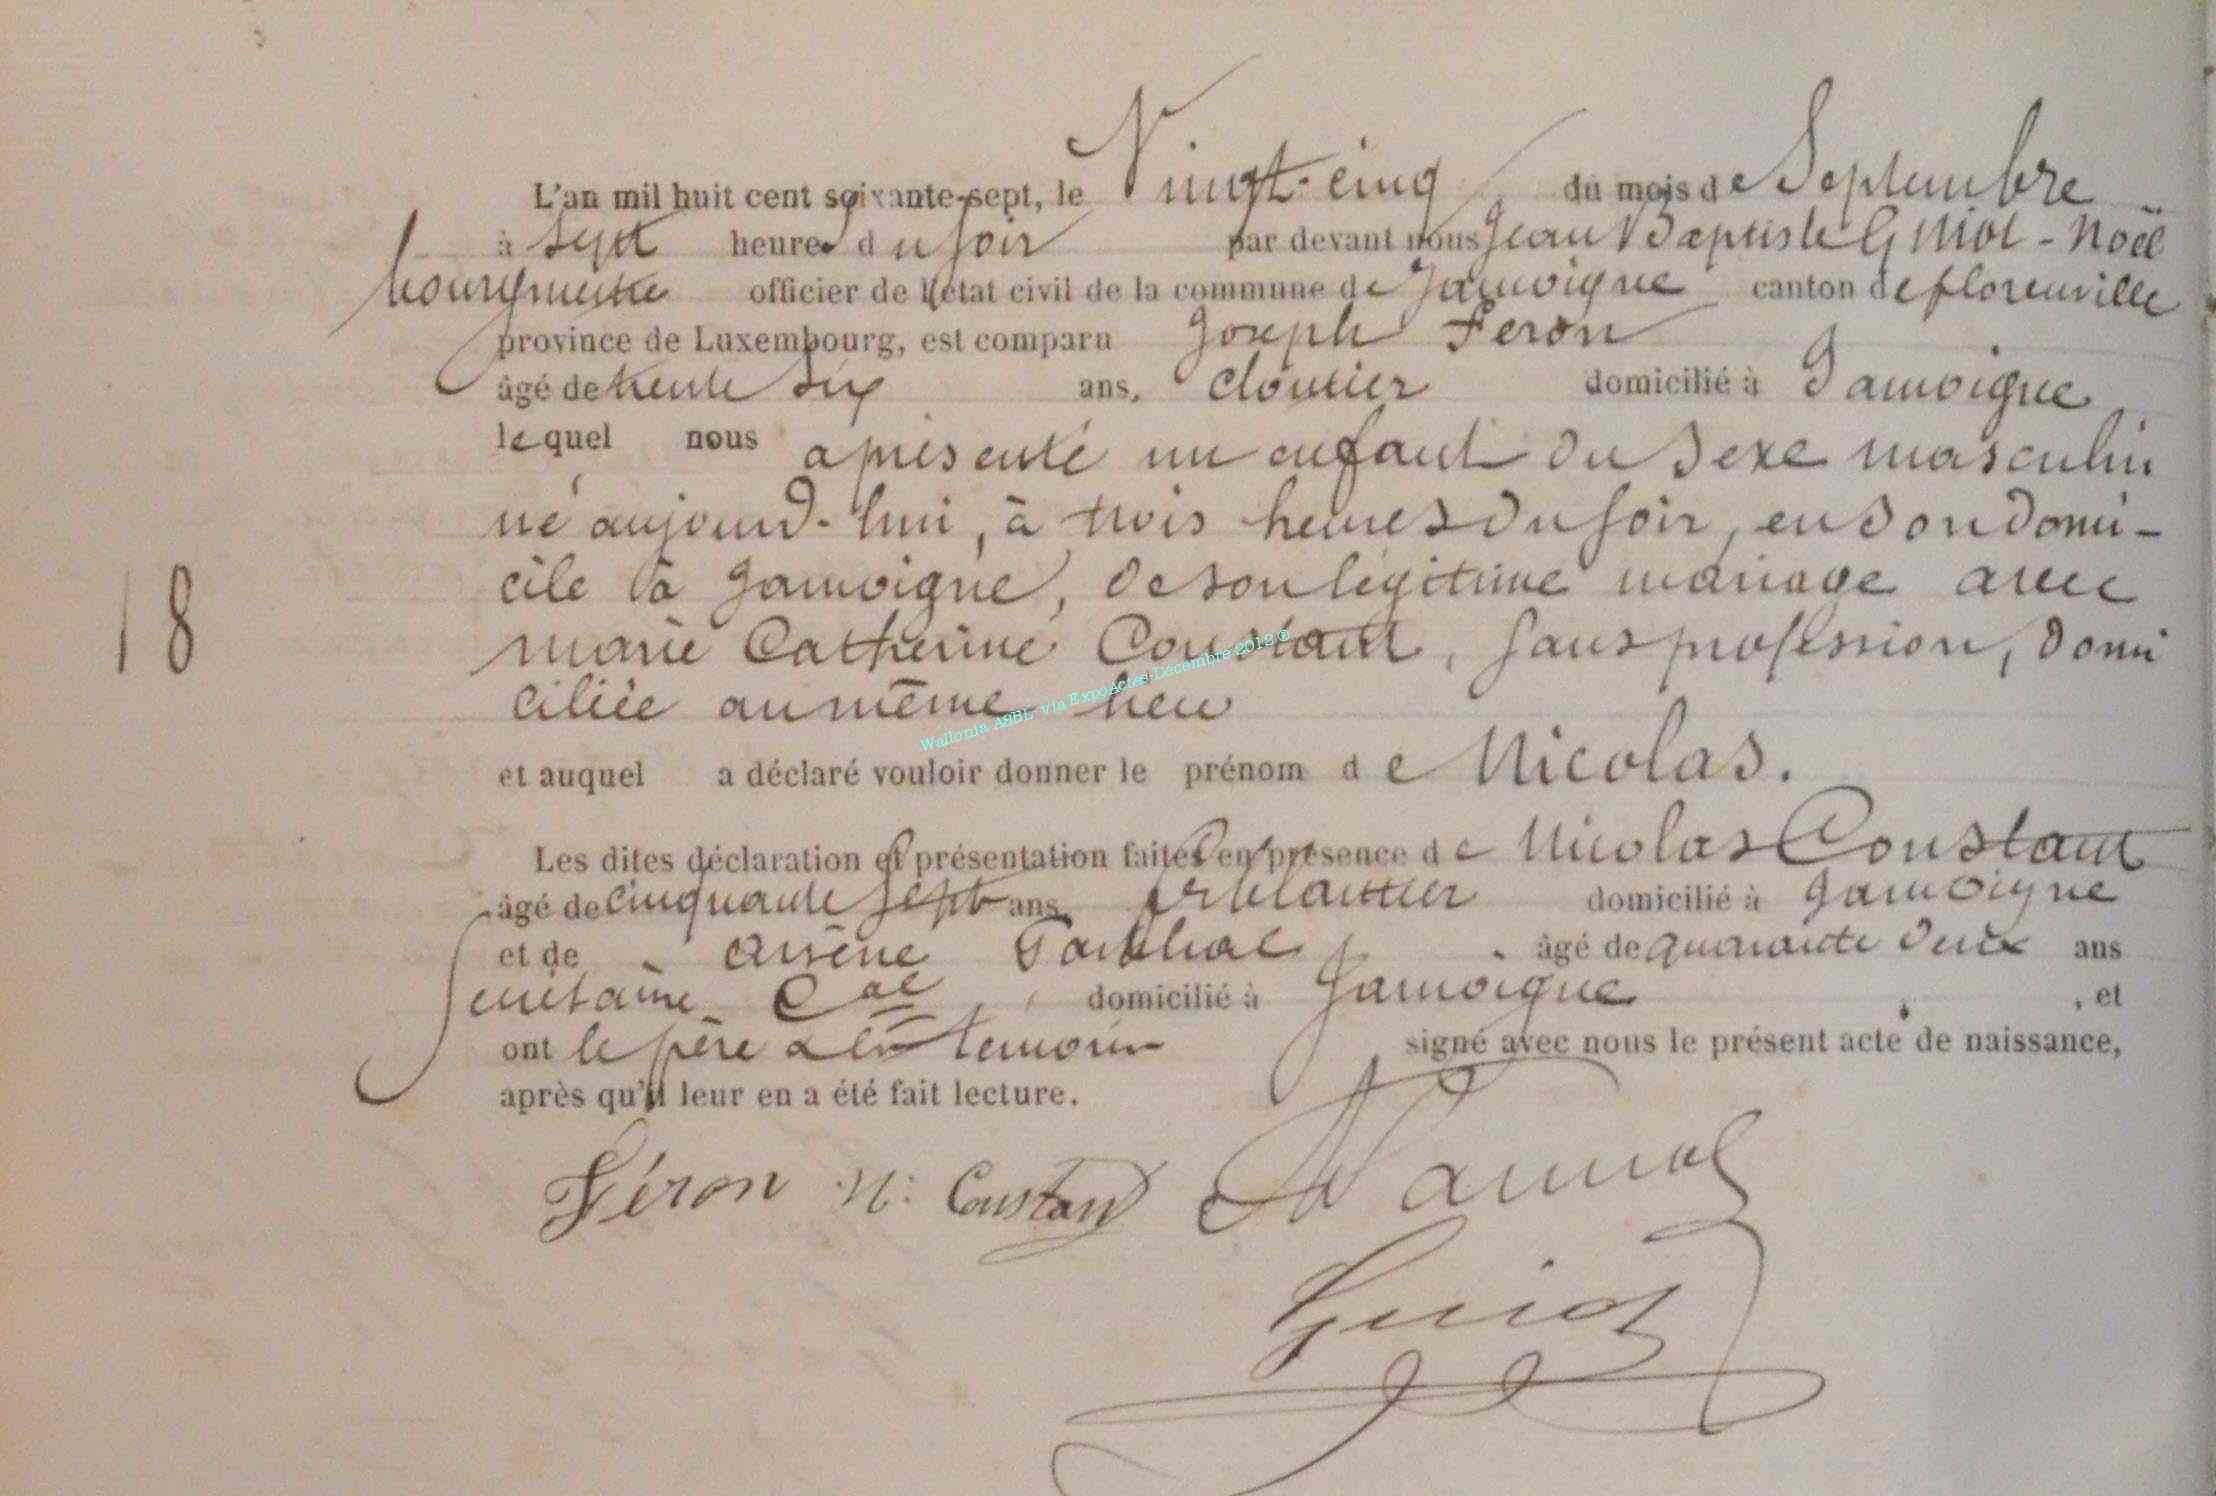 L'an mil huit cent soixante-sept, le Vingt-cinq du mois de Septembre
à sept heures du soir par devant nous Jean Baptiste Guiot-Noël
bourgmestre officier de l'état civil de la commune de Jamoigne canton de florenville
province de Luxembourg, est comparu Joseph Feron
âgé de trente six ans, cloutier domicilié à Jamoigne
lequel nous a présenté un enfant du sexe masculin
né aujourd-hui, à trois heures du soir, en son domi-
cile à Jamoigne, de son légitime mariage avec
marie Catherine Constant, sans profession, domi
ciliée au même lieu
et auquel a déclaré vouloir donner le prénom de Nicolas.
18
Les dites déclaration et présentation faites en présence de Nicolas Constant
âgé de cinquante sept ans, ferblantier domicilié à Jamoigne
et de Arsène âgé de quarante deux ans
secrétaire Cal domicilié à Jamoigne, et
ont le père et les témoins signé avec nous le présent acte de naissance,
après qu'il leur en a été fait lecture.
Féron N: Constant
Guiot
Wallonia ASBL via ExpoActes-Décembre 2012 ®